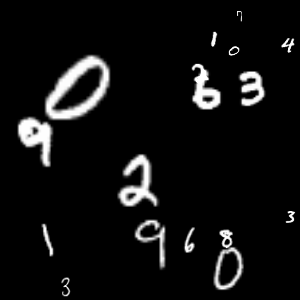 7
1 0 4
0 2 6 3
9
2
3
1 9 6 8
0
3